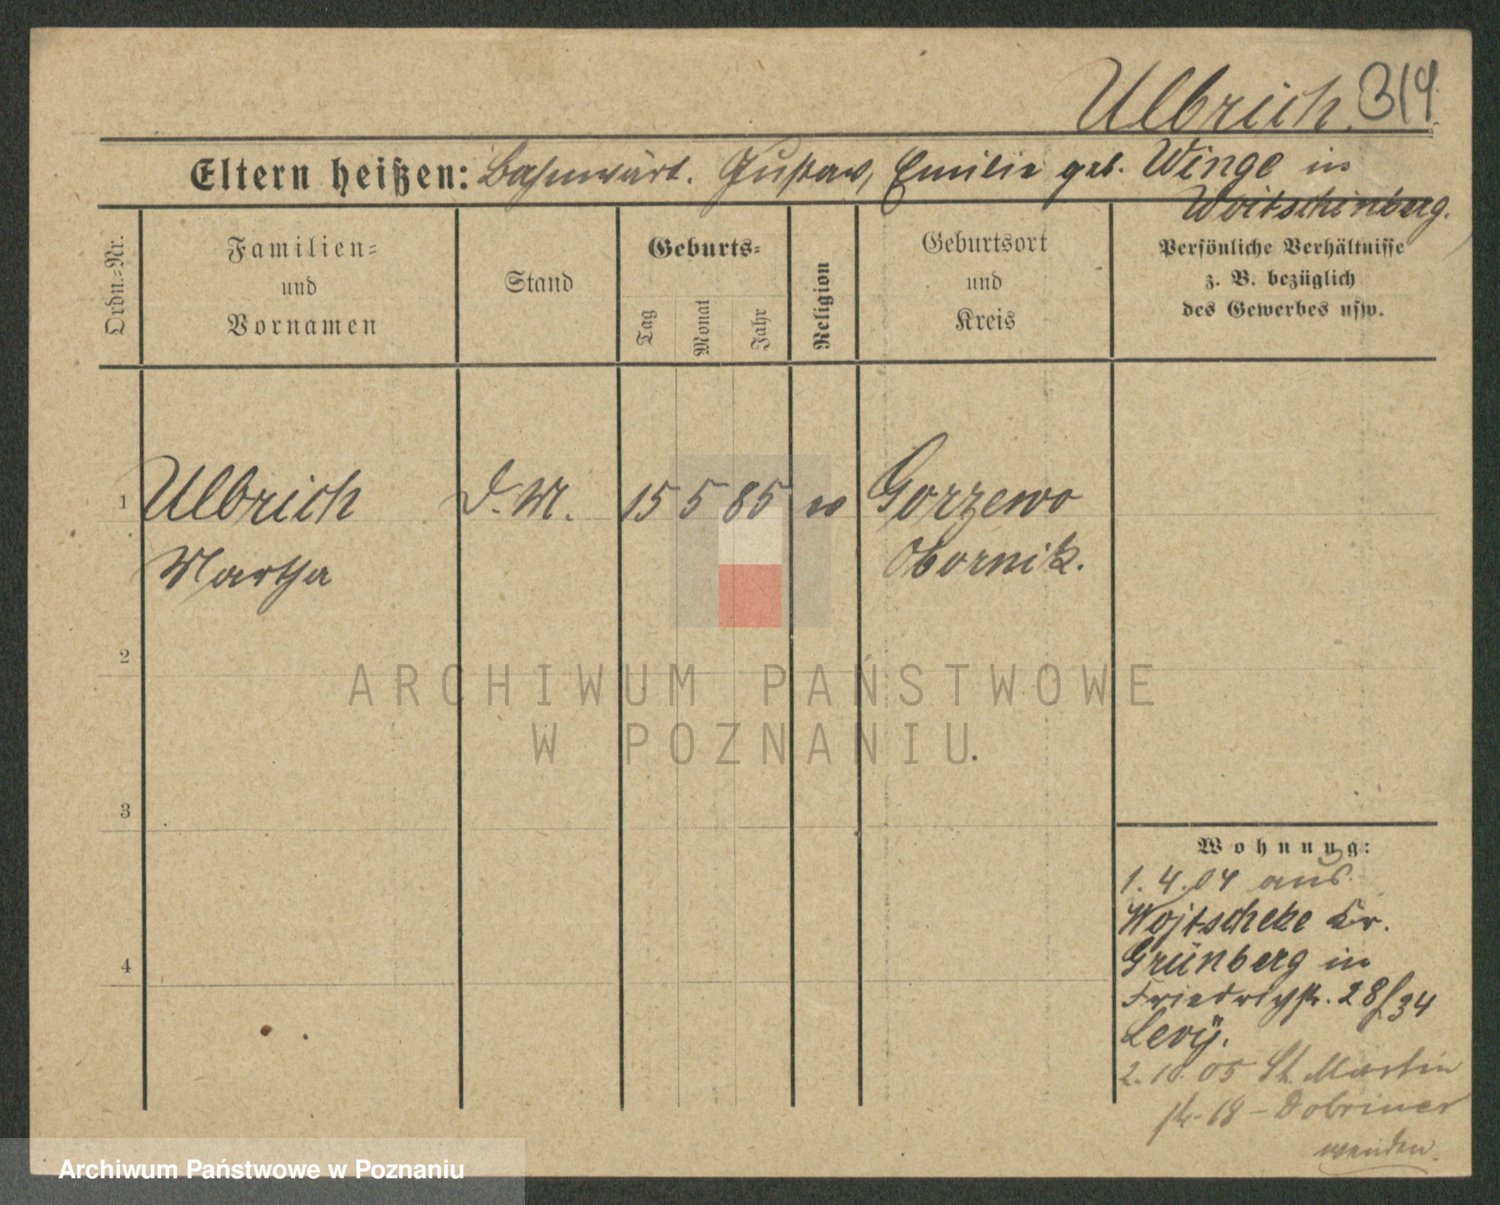 Ulbrich. 314
Eltern heißen: Bahnwärt. Gustav, Emilie geb. Winge in
Woitschinberg.
Ordn.=Nr.
Familien=
und
Vornamen
Stand
Geburts=
Tag
Monat
Jahr
Religion
Geburtsort
und
Kreis
Persönliche Verhältnisse
z. B. bezüglich
des Gewerbes usw.
1 Ulbrich D. M. 15 5 85 ev Gorzewo
Martha Obornik.
2
ARCHIWUM PAŃSTWOWE
W POZNANIU
3
4
Wohnung:
1. 4. 04 aus
Wojtscheke Kr.
Grünberg in
Friedrichstr. 28/34
Levÿ.
2. 10. 05 St. Martin
str. 18 - Dobriner
wenden.
Archiwum Państwowe w Poznaniu